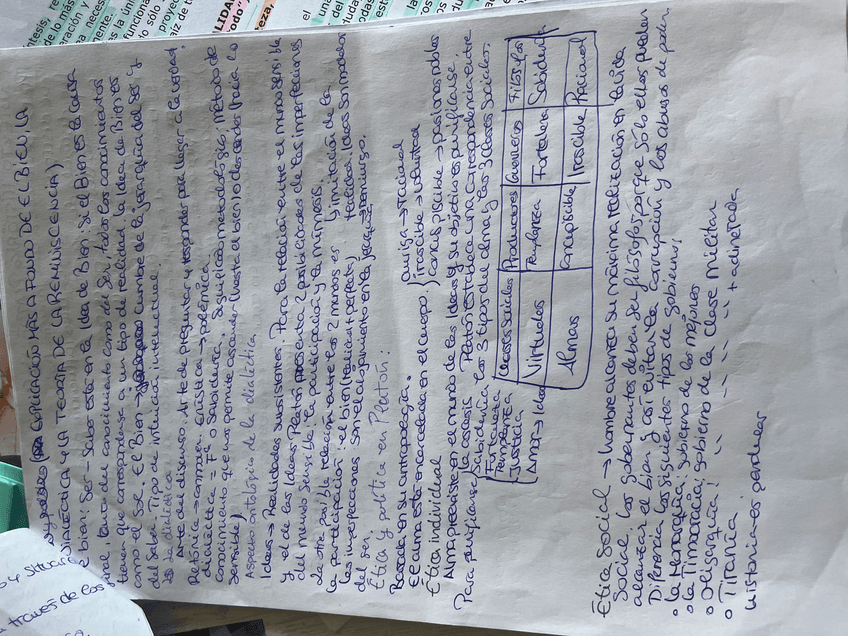 EXPLICACIÓN MÁS A FONDO DE EL BIEN, LA
DIALÉCTICA Y LA TEORÍA DE LA REMINISCENCIA)
El bien: Ser - Saber está en la Idea de Bien: si el Bien es la causa
final, tanto del conocimiento como del Ser, todos los conocimientos
tienen que corresponderse a un tipo de realidad. La Idea de Bien es
como el Sol. El Bien → cumbre de la jerarquía del Ser y
del Saber. Tipo de intuición intelectual.
La dialéctica:
Arte del discurso. Arte de preguntar y responder para llegar a la verdad.
Retórica → contraria. Erística → polémica.
dialéctica = Fª o Sabiduría. Significado metodológico: método de
conocimiento que nos permite ascender hasta el bien (o descender hacia lo
sensible)
Aspecto ontológico de la dialéctica
Ideas → Realidades subsistentes. Para la relación entre el mundo sensible
y el de las Ideas Platón presenta 2 posibilidades de las imperfecciones
del mundo sensible: la participación y la mímesis.
La otra posible relación entre los 2 mundos es
la participación: el bien (realidad + perfecta)
las imperfecciones son el alejamiento en la jerarquía
del ser.
y imitación de la
realidad. Ideas son modelos
→ Demiurgo.
Ética y política en Platón:
Basada en su antropología
El alma está encarcelada en el cuerpo.
auriga → racional
irascible → voluntad
concupiscible → pasiones nobles
Ética individual
Alma preexiste en el mundo de las Ideas y su objetivo es purificarse.
Para purificarse
la ascesis
Sabiduría
Fortaleza
Templanza
Justicia
Amor → Ideas
Platón establece una correspondencia entre
los 3 tipos del alma y las 3 clases sociales:
Clases Sociales Productores Guerreros Filósofos
Virtudes Templanza Fortaleza Sabiduría
Almas Concupiscible Irascible Racional
Ética Social → hombre alcanza su máxima realización en la vida
Social. los gobernantes deben ser filósofos porque sólo ellos pueden
alcanzar el bien y así evitar la corrupción y los abusos de poder.
Diferencia los siguientes tipos de gobierno:
• la Monarquía: gobierno de los mejores
• la Timocracia: gobierno de la clase militar
• Oligarquía: " " " " + adinerada
• Tiranía